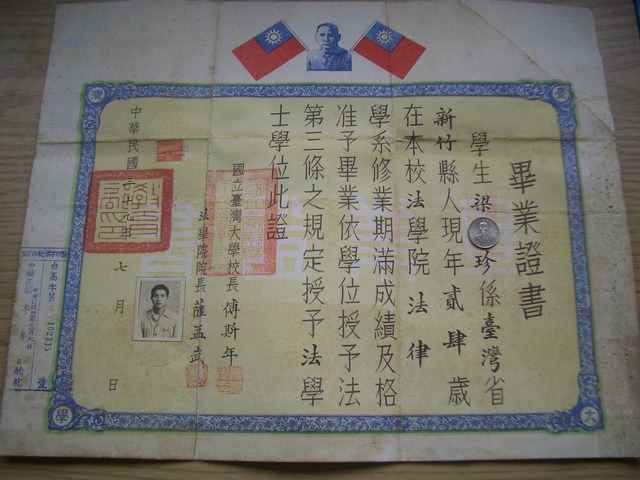 畢業證書
學生梁 珍係臺灣省
新竹縣人現年貳肆歲
在本校法學院法律
學系修業期滿成績及格
准予畢業依學位授予法
第三條之規定授予法學
士學位此證
國立臺灣大學校長傅斯年
法學院院長薩孟武
中華民國 十九年七月 日
臺
大
學
102335
號